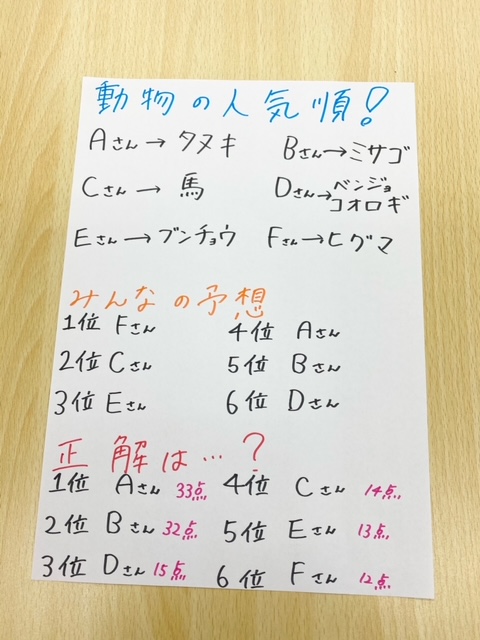 動物の人気順!
Aさん→タヌキ Bさん→ミサゴ
Cさん→馬 Dさん→ベンジョコオロギ
Eさん→ブンチョウ Fさん→ヒグマ
みんなの予想
1位 Fさん 4位 Aさん
2位 Cさん 5位 Bさん
3位 Eさん 6位 Dさん
正解は…?
1位 Aさん 33点 4位 Cさん 14点
2位 Bさん 32点 5位 Eさん 13点
3位 Dさん 15点 6位 Fさん 12点